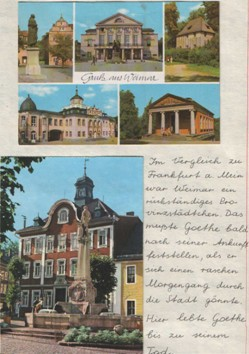 Gruß aus Weimar
Im Vergleich zu
Frankfurt a. Main
war Weimar ein
rückständiges Pro-
vinzstädtchen. Das
mußte Goethe bald
nach seiner Ankunft
feststellen, als er
sich einen raschen
Morgengang durch
die Stadt gönnte.
Hier lebte Goethe
bis zu seinem
Tod.